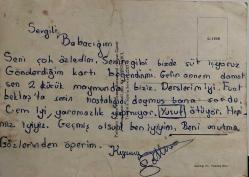 Sevgili,
Babacığım
Seni çok özledim. Senin gibi bizde süt içiyoruz
Gönderdiğim kartı beğendinmi. Gelin annem damat
sen 2 küçük maymunda biziz. Derslerim iyi. Fuat
senin hastalığın doğmuş bana sordu.
Çiçem iyi, yaramazlık yapmıyor. Yusuf ötüyor. Hep
imiz iyiyiz. Geçmiş olsun ben iyiyim. Beni unutma
Gözlerinden öperim. Kızın